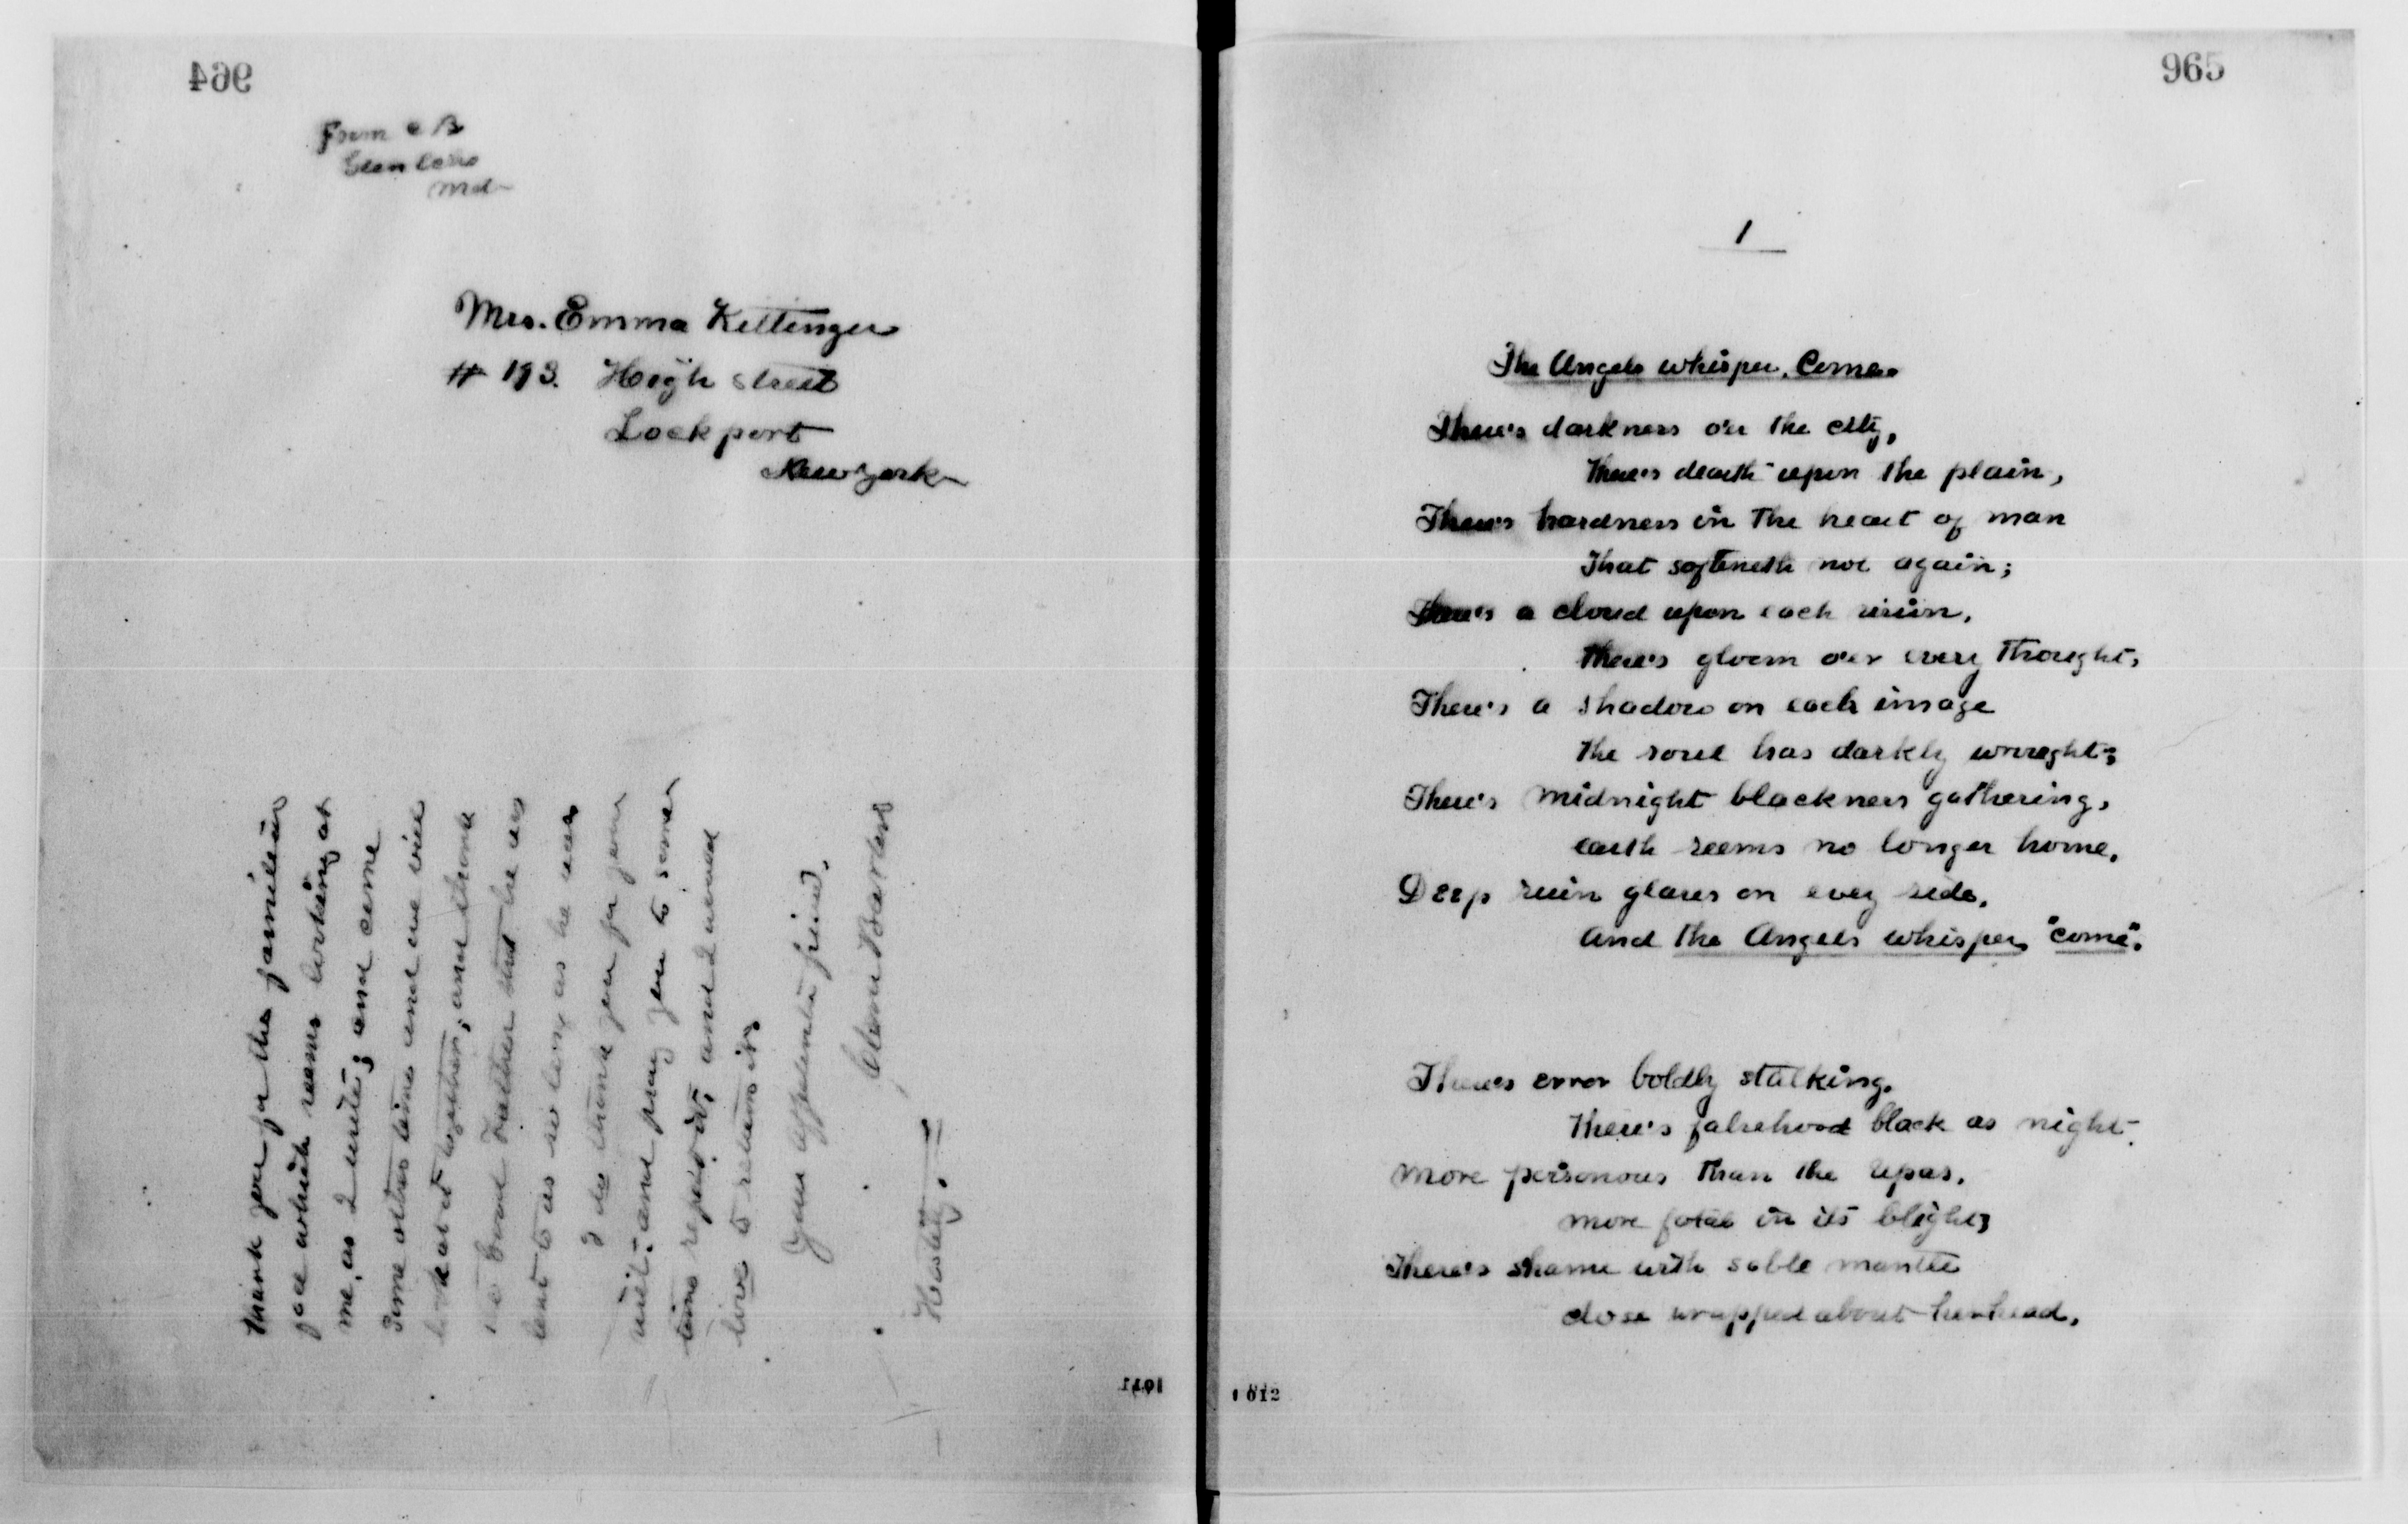 964
From C B
Glen Echo
Md
Mrs. Emma Kittinger
# 193. High street
Lockport
New York
Thank you for the familiar
face which seems looking at
me, as I write; and some
Time others time and we will
look at it together, and thank
the Good Father that he
lent to us so long as he
I do thank you for your
visit, and pray you to some
time repeat it, and I would
live to return it.
Your appreciative friend,
Clara Barton
Hastily.
1011
965
1
The Angels whisper, Come.
There's darkness o'er the city,
there's dearth upon the plain,
There's hardness in the heart of man
That softeneth not again;
There's a cloud upon each vision,
there's gloom o'er every thought,
There's a shadow on each image
the soul has darkly wrought;
There's midnight blackness gathering,
earth seems no longer home,
Deep ruin glares on every side,
And the Angels whisper "come".
There's error boldly stalking,
there's falsehood black as night
more poisonous than the upas,
more fatal in its blight;
There's shame with sable mantle
close wrapped about her head,
1012